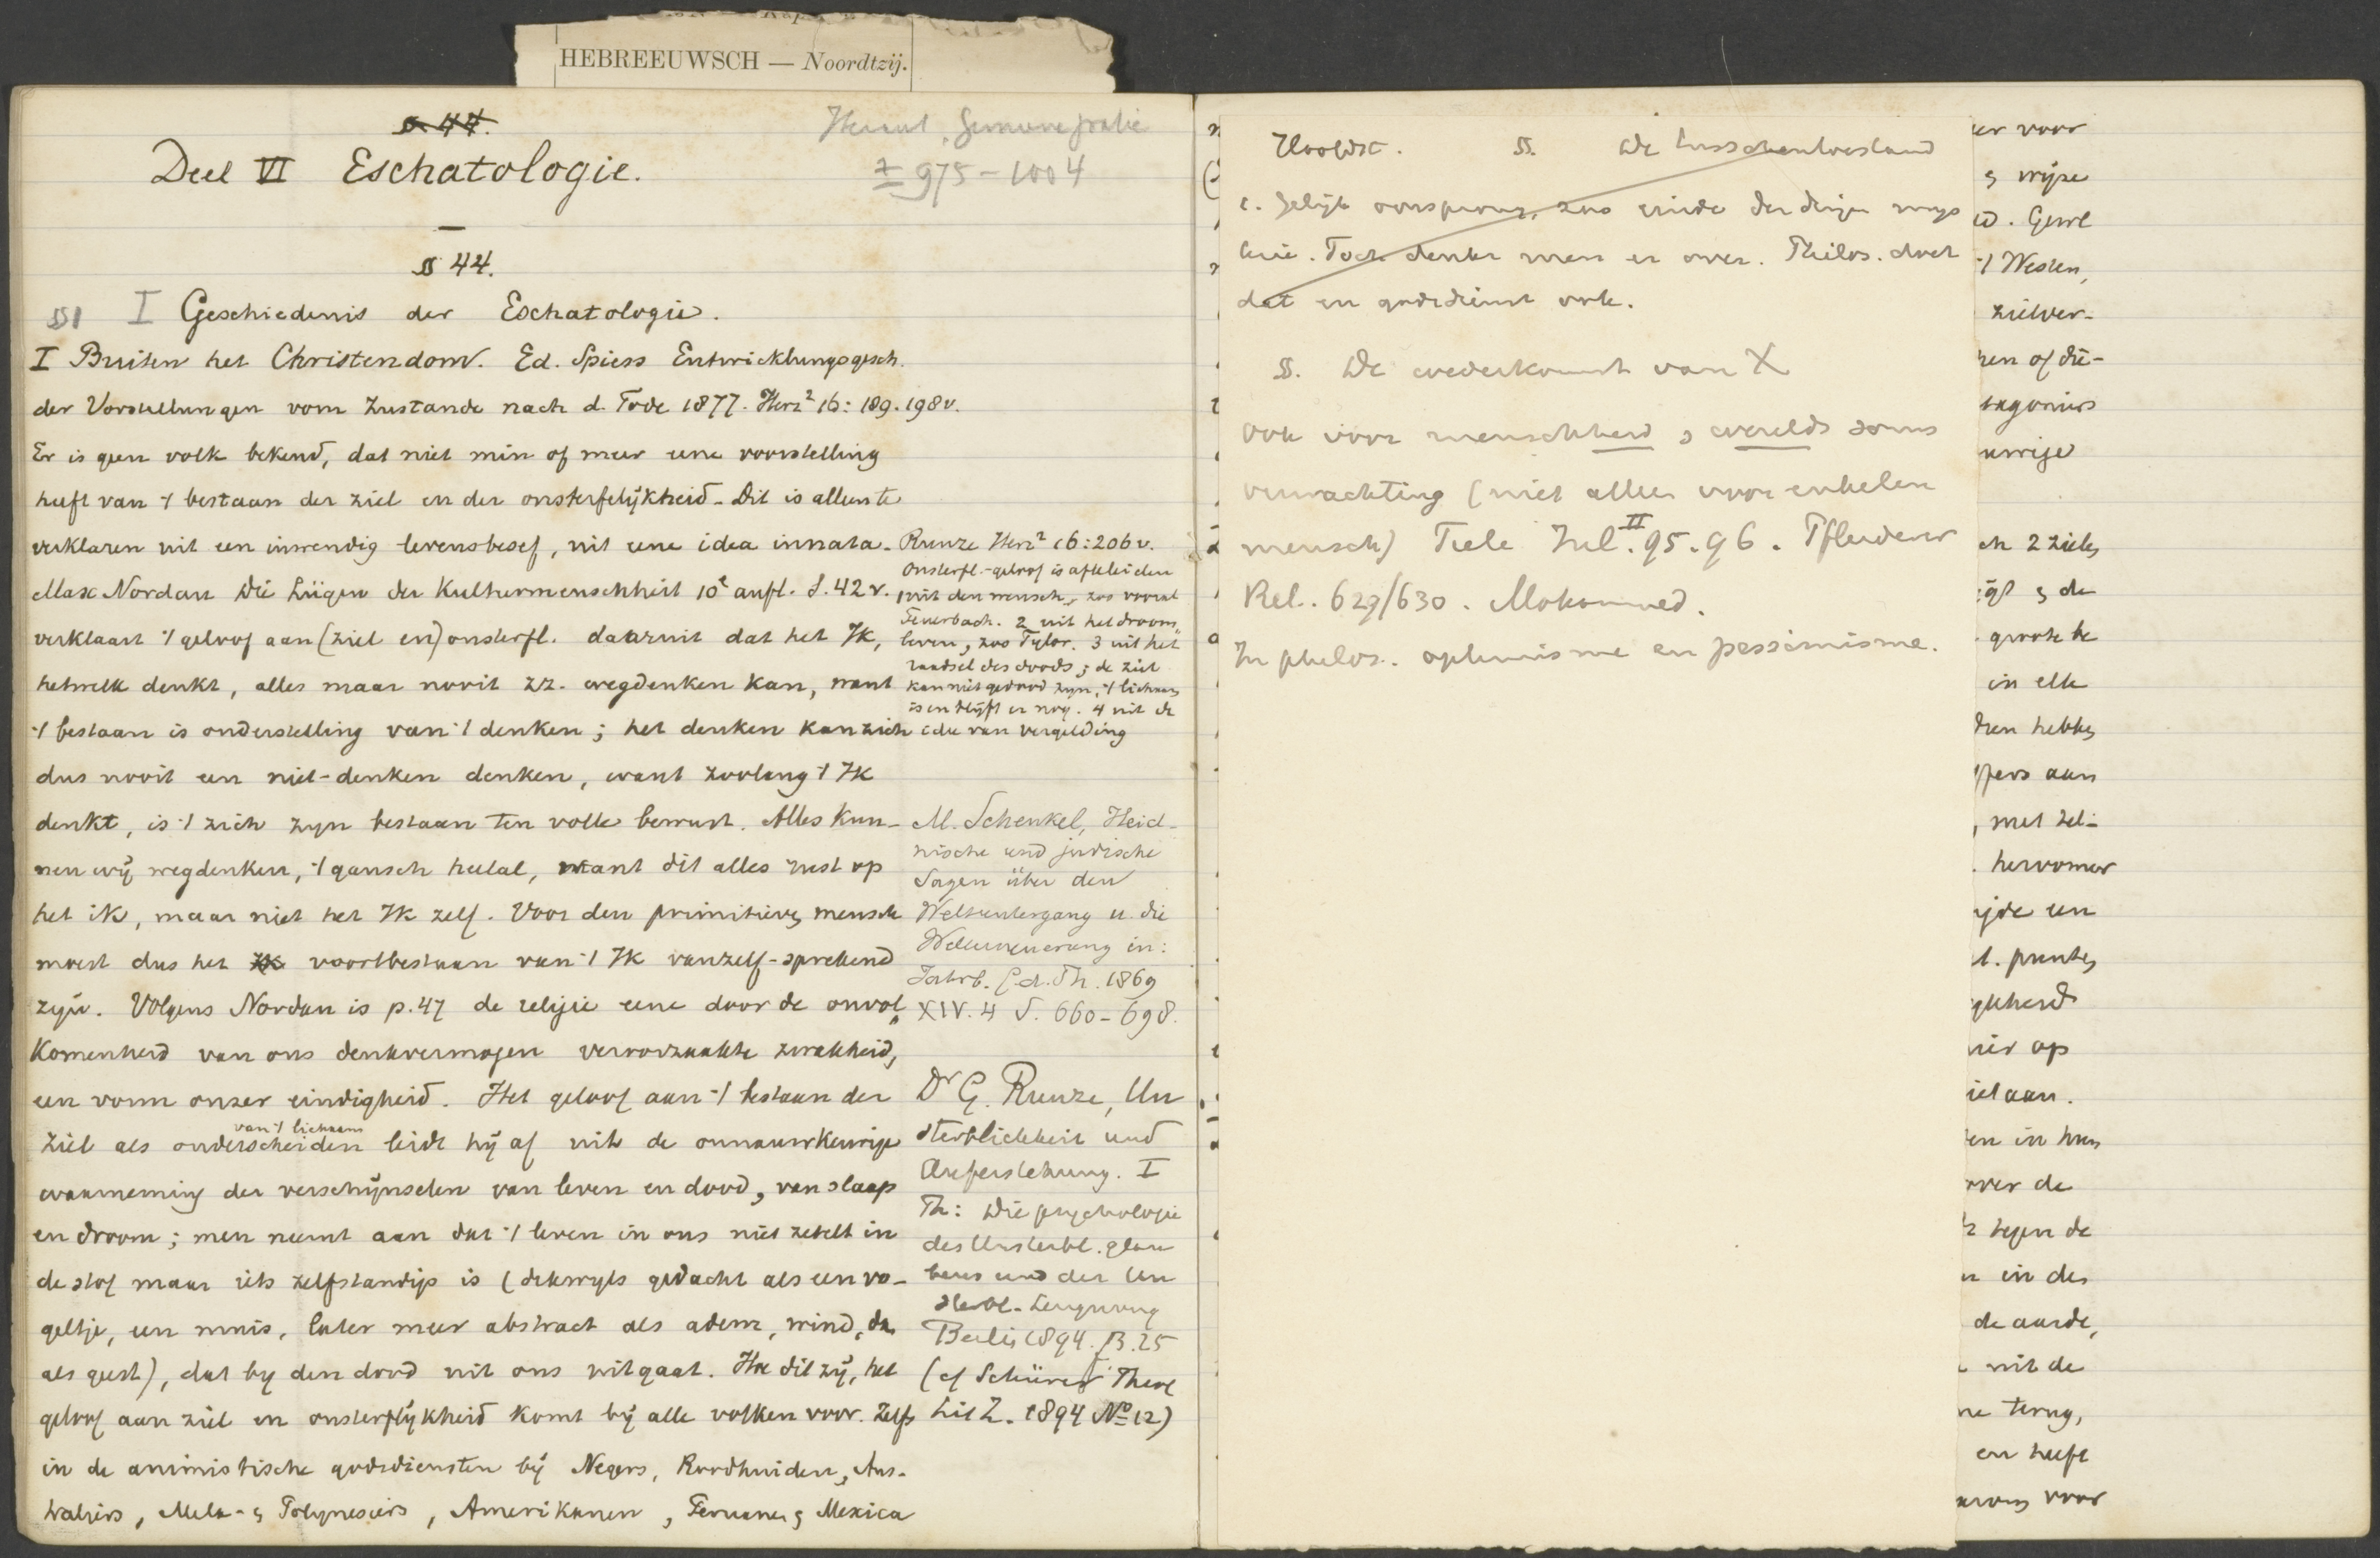 HEBREEUWSCH — Noordtzij.
§ 44.
Deel VI Eschatologie.
± 975-1004
§ 44.
§§1 I Geschiedenis der Eschatologie.
I Buiten het Christendom. Ed. Spiess Entwicklungsgesch.
der Vorstellungen vom Zustande nach d. Tode 1877. Herz² 16: 189. 198v.
Er is geen volk bekend, dat niet min of meer eene voorstelling
heeft van 't bestaan der ziel en der onsterfelijkheid. Dit is alleen te
verklaren uit een inwendig levensbesef, uit eene idea innata.
Max Nordau Die Lügen der Kulturmenschheit 10e aufl. S. 42v.
verklaart 't geloof aan (ziel en) onsterfl. daaruit dat het Ik,
hetwelk denkt, alles maar nooit zz. wegdenken kan, want
't bestaan is onderstelling van 't denken; het denken kan zich
dus nooit een niet-denken denken, want zoolang 't Ik
denkt, is 't zich zyn bestaan ten volle bewust. Alles kun-
nen wij wegdenken, 't gansch heelal, want dit alles rust op
het ik, maar niet het Ik zelf. Voor den primitieven mensch
moest dus het Ik voortbestaan van 't Ik vanzelf-sprekend
zijn. Volgens Nordau is p. 47 de religie eene door de onvol
komenheid van ons denkvermogen veroorzaakte zwakheid,
een vorm onzer eindigheid. Het geloof aan 't bestaan der
van 't lichaam
ziel als onderscheiden leidt hij af uit de onnauwkeurige
waarneming der verschijnselen van leven en dood, van slaap
en droom; men neemt aan dat 't leven in ons niet zetelt in
de stof maar iets zelfstandigs is (dikwyls gedacht als een vo-
geltje, een muis, later meer abstract als adem, wind,
als geest), dat by den dood uit ons uitgaat. Hoe dit zij, het
geloof aan ziel en onsterflijkheid komt bij alle volken voor. Zelfs
in de animistische godsdiensten bij Negers, Roodhuiden, Aus-
traliers, Mela- en Polynesiers, Amerikanen, Peruanen Mexica
Runze Herz² 16:206v.
Onsterfl.-geloof is afteleiden
1 uit den mensch, zoo vooral
Feuerbach. 2 uit het droom
leven, zoo Tylor. 3 uit het
raadsel des doods; de ziel
kan niet gedood zyn, 't lichaam
is en blijft er nog. 4 uit de
idee van vergelding
M. Schenkel, Heid-
nische und judische
Sagen über den
Weltuntergang u. die
Welterneuerung in:
Jahrb. f. d. Th. 1869
XIV. 4 S. 660-698.
Dr G. Runze, Un
sterblichkeit und
Auferstehung. I
Th: Die psychologie
des Unsterbl. glau
bens und der Un
sterbl. Leugnung
Berlin 1894.
(cf Schürer Theol
Lit Z. 1894 No 12)
Hoofdst. §. De tusschentoestand
1. Gelijk oorsprong, zoo einde der dingen mys
terie. Toch denkt men er over. Philos. doet
dat en godsdienst ook.
§. De wederkomst van X
ook voor menschheid en wereld soms
verwachting (niet alleen voor enkelen
mensch) Tiele Inl. II 95.96. Pfleiderer
Rel. 629/630. Mohammed.
In philos. optimisme en pessimisme.
er voor
wijze
't Westen,
zielver-
ren of die-
2 zielen
in elk
hebben
aan
hervormer
op
aan.
over de
tegen de
in den
de aarde,
uit de
terug,
en heeft
voor